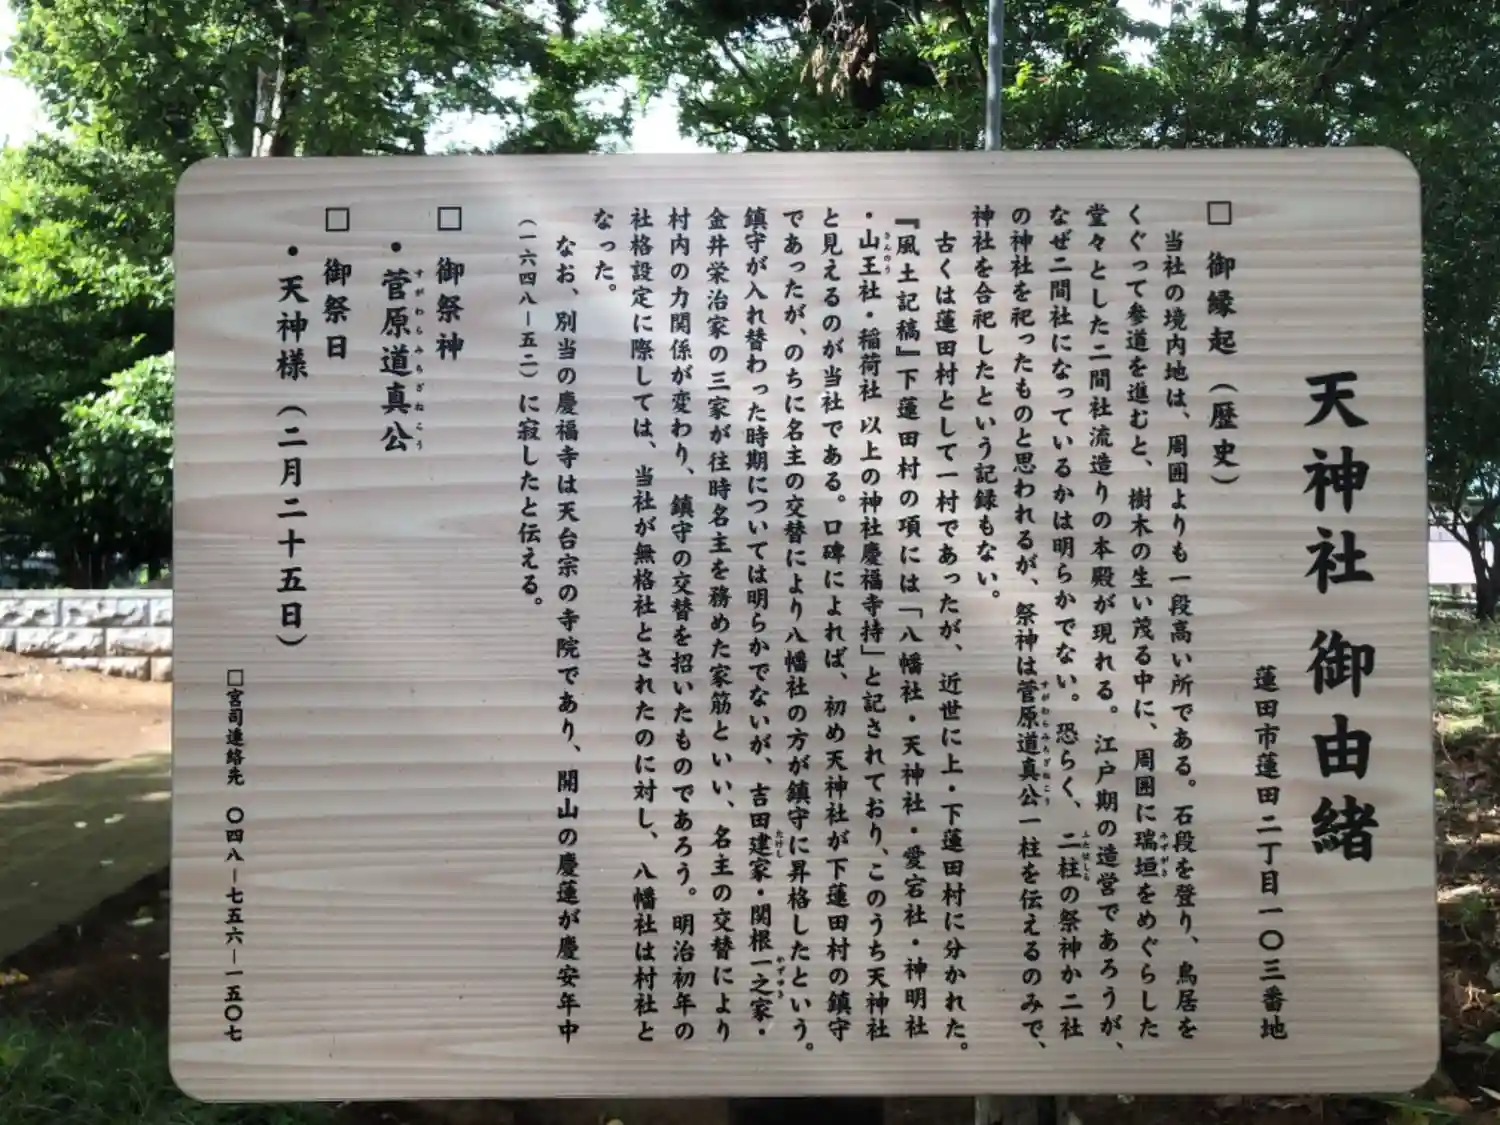 天神社 御由緒
蓮田市蓮田二丁目一〇三番地
□ 御縁起(歴史)
当社の境内地は、周囲よりも一段高い所である。石段を登り、鳥居を
くぐって参道を進むと、樹木の生い茂る中に、周囲に瑞垣をめぐらした
みずがき
堂々とした二間社流造りの本殿が現れる。江戸期の造営であろうが、
なぜ二間社になっているかは明らかでない。恐らく、二柱の祭神か二社
ふたはしら
の神社を祀ったものと思われるが、祭神は菅原道真公一柱を伝えるのみで、
すがわらみちざねこう
神社を合祀したという記録もない。
古くは蓮田村として一村であったが、近世に上・下蓮田村に分かれた。
『風土記稿』下蓮田村の項には「八幡社・天神社・愛宕社・神明社
・山王社・稲荷社 以上の神社慶福寺持」と記されており、このうち天神社
さんのう
と見えるのが当社である。口碑によれば、初め天神社が下蓮田村の鎮守
であったが、のちに名主の交替により八幡社の方が鎮守に昇格したという。
鎮守が入れ替わった時期については明らかでないが、吉田建家・関根一之家・
たけし
かずゆき
金井栄治家の三家が往時名主を務めた家筋といい、名主の交替により
村内の力関係が変わり、鎮守の交替を招いたものであろう。明治初年の
社格設定に際しては、当社が無格社とされたのに対し、八幡社は村社と
なった。
なお、別当の慶福寺は天台宗の寺院であり、開山の慶蓮が慶安年中
(一六四八－五二)に寂したと伝える。
□ 御祭神
・菅原道真公
すがわらみちざねこう
□ 御祭日
・天神様(二月二十五日)
□宮司連絡先 〇四八－七五六－一五〇七